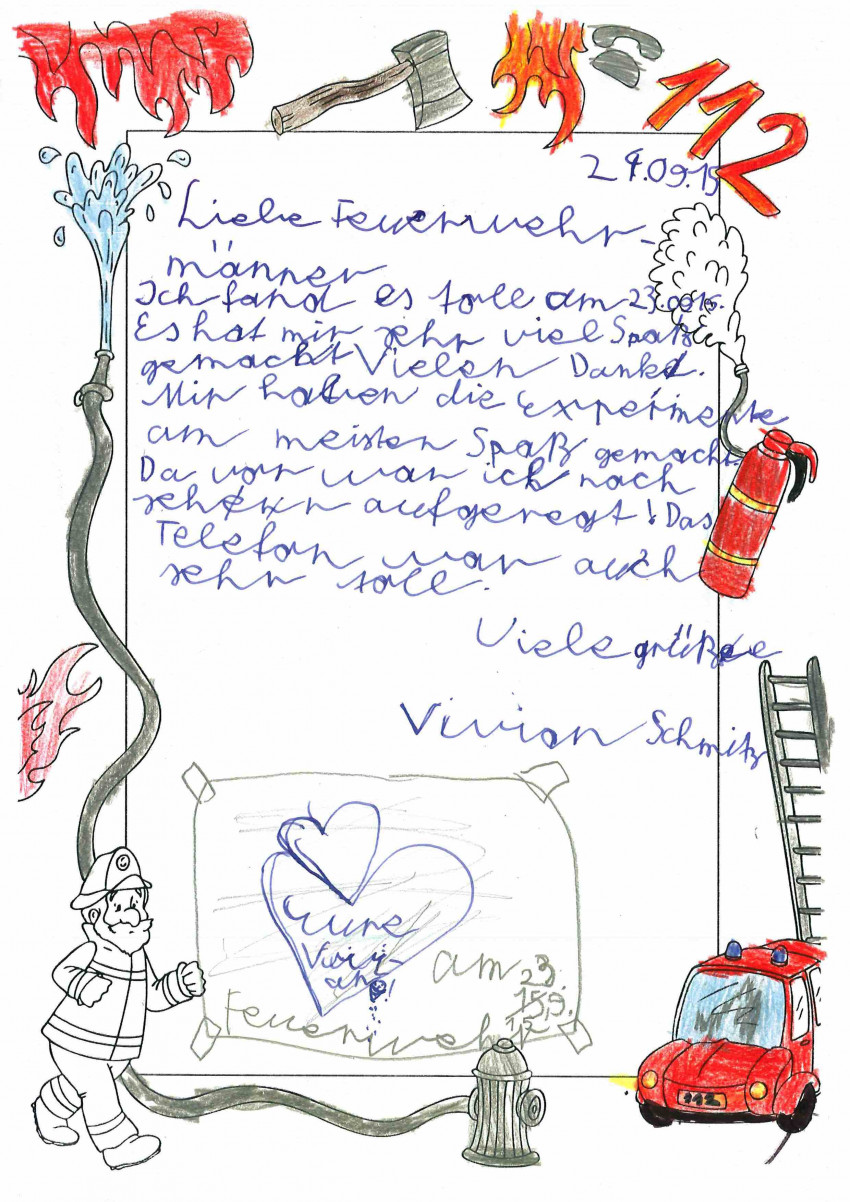 112
29.09.15
Liebe Feuerwehr-
männer
Ich fand es toll am 23.0915.
Es hat mir sehr viel Spaß
gemacht Vielen Dank.
Mir haben die Experimente
am meisten Spaß gemacht.
Da vor war ich noch
sehr aufgeregt! Das
Telefon war auch
sehr toll.
Viele grüße
Vivian Schmitz
Eure
Vivi-
an!
am 23.
Feuerwehr
112